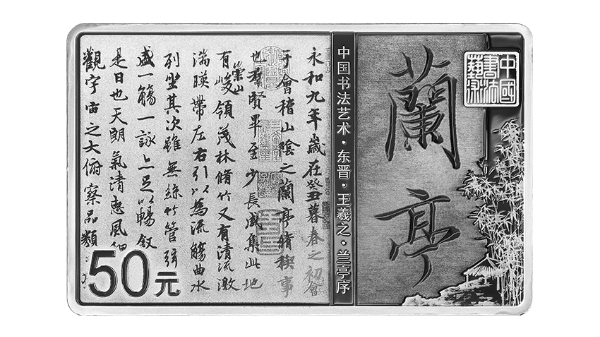 中國
書法
藝術
蘭亭
中国书法艺术·东晋·王羲之·兰亭序
永和九年歲在癸丑暮春之初會
于會稽山陰之蘭亭脩稧事
也羣賢畢至少長咸集此地
崇山
有峻領茂林脩竹又有清流激
湍暎帶左右引以為流觴曲水
列坐其次雖無絲竹管弦
盛一觴一詠亦足以暢叙
是日也天朗氣清惠風
觀宇宙之大俯察品類
50元